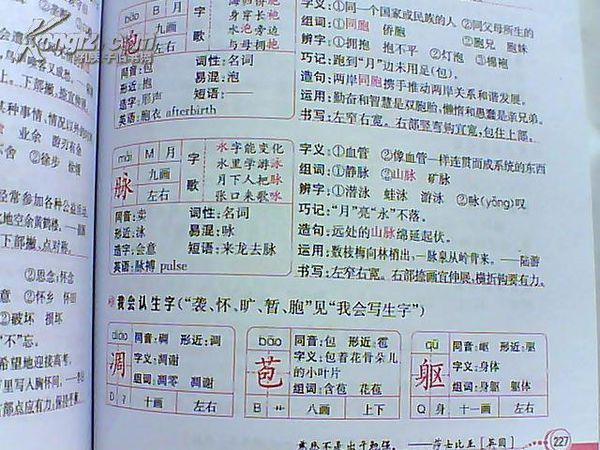 Kongfz.com
bāo B 月
九画
左右
胞
字
歌
身穿长袍
水泡旁边
与母拥抱
同音:包 词性:名词
形近:抱 易混:泡
造字:形声 短语:——
英语:胞衣 afterbirth
字义:①同一个国家或民族的人 ②同父母所生的
组词:①同胞 侨胞 ②胞兄 胞妹
辨字:①拥抱 抱不平 ②灯泡 ③棉袍
巧记:跑到“月”边未用足(包)。
造句:两岸同胞携手推动两岸关系和谐发展。
运用:勤奋和智慧是双胞胎,懒惰和愚蠢是亲兄弟。
书写:左窄右宽。右部竖弯钩宜宽,包住上部。
mài M 月
九画
左右
脉
字
歌
水字能变化
水里学游泳
月下人把脉
张口来歌咏
同音:卖 词性:名词
形近:泳 易混:咏
造字:会意 短语:来龙去脉
英语:脉搏 pulse
字义:①血管 ②像血管一样连贯而成系统的东西
组词:①静脉 ②山脉 矿脉
辨字:①潜泳 蛙泳 游泳 ②咏(yǒng)叹
巧记:“月”亮“永”不落。
造句:远处的山脉绵延起伏。
运用:数枝梅向林梢出,一脉泉从岭背来。——陆游
书写:左窄右宽。右部捺画宜伸展,横折钩要有力。
我会认生字(“袭、怀、旷、暂、胞”见“我会写生字”)
diāo
凋
同音:碉 形近:调
字义:凋谢
组词:凋零 凋谢
D 冫 十画 左右
bāo
苞
同音:包 形近:雹
字义:包着花骨朵儿
的小叶片
组词:含苞 花苞
B 艹 八画 上下
qū
躯
同音:岖 形近:驱
字义:身体
组词:身躯 躯体
Q 身 十一画 左右
——莎士比亚[英国] 227
某种事情,情况以外的
业余 游刃有余
②徐步 徐缓
经常参加各种公益活动
此地空余黄鹤楼。
下部撇、点对称。
②思念:怀念
②怀乡 怀旧
②破坏 损坏
“不”忘。
希望地迎接高考。